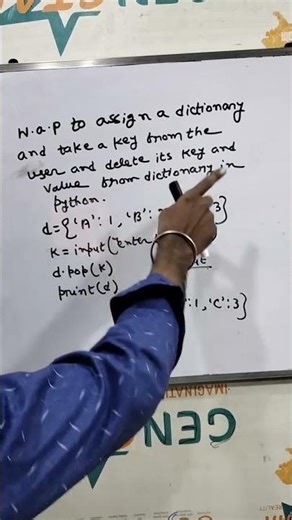 W.a.p to assign a dictionary
and take a key from the
user and delete its key and
value from dictionary in
python.
d={'A': 1, 'B': 3}
k = input("enter
d.pop(k)
print(d) : 1, 'C': 3}
CEN
IMAGINATI